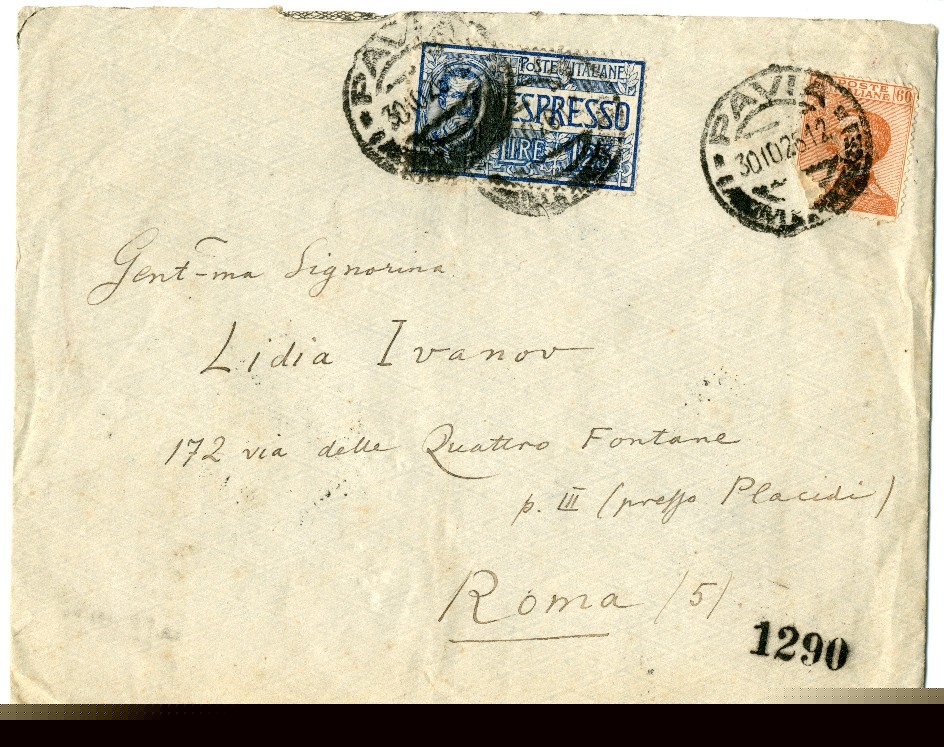 PAVIA
30.10.26
POSTE ITALIANE
ESPRESSO
LIRE 1,25
1 • PAVIA
30.10.26.12
POSTE ITALIANE 60
Gent-ma Signorina
Lidia Ivanov
172 via delle Quattro Fontane
p. III (presso Placidi)
Roma (5)
1290